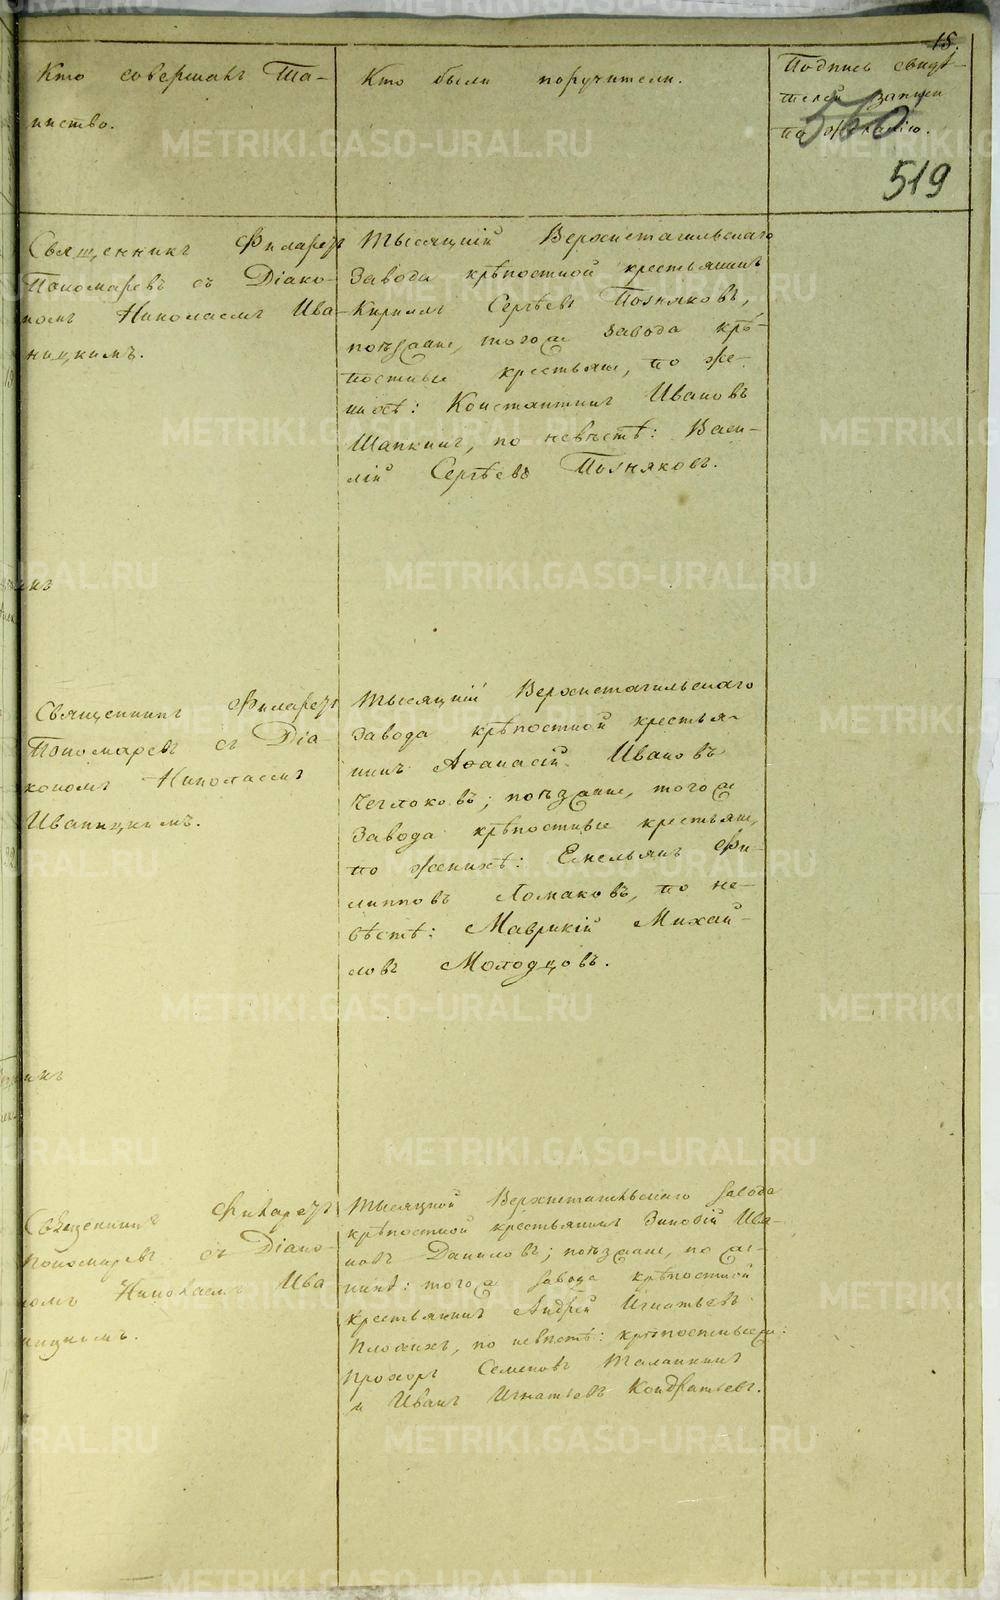 15.
Кто совершалъ Та-
инство.
Кто были поручители.
Подпись свидѣ-
телей записи
по желанію.
560
519
Священникъ Филаретъ
Пономаревъ съ Діако-
номъ Николаемъ Ива-
ницкимъ.
Тысяцкій Верхнетагильскаго
Завода крѣпостной крестьянинъ
Кириллъ Сергѣевъ Поляковъ,
поѣзжане, того же завода крѣ-
постные крестьяне, по же-
нихѣ: Константинъ Ивановъ
Шапкинъ, по невѣстѣ: Васи-
лій Сергѣевъ Поляковъ.
Священникъ Филаретъ
Пономаревъ съ Діа
кономъ Николаемъ
Иваницкимъ.
Тысяцкій Верхнетагильскаго
Завода крѣпостной крестья-
нинъ Аѳанасій Ивановъ
Чеглоковъ; поѣзжане, того же
Завода крѣпостные крестьяне,
по женихѣ: Емельянъ Фи-
липповъ Ломаковъ, по не-
вѣстѣ: Маврикій Михай-
ловъ Молодцовъ.
Священникъ Филаретъ
Пономаревъ съ Діако-
номъ Николаемъ Ива
ницкимъ.
Тысяцкой Верхнетагильскаго завода
крѣпостной крестьянинъ Зиновій Ива-
новъ Даниловъ; поѣзжане, по же-
нихѣ: того же завода крѣпостной
крестьянинъ Андрей Игнатьевъ
Плохихъ, по невѣстѣ: крѣпостные же:
Прохоръ Семеновъ Талапкинъ
и Иванъ Игнатьевъ Кондратьевъ.
METRIKI.GASO-URAL.RU